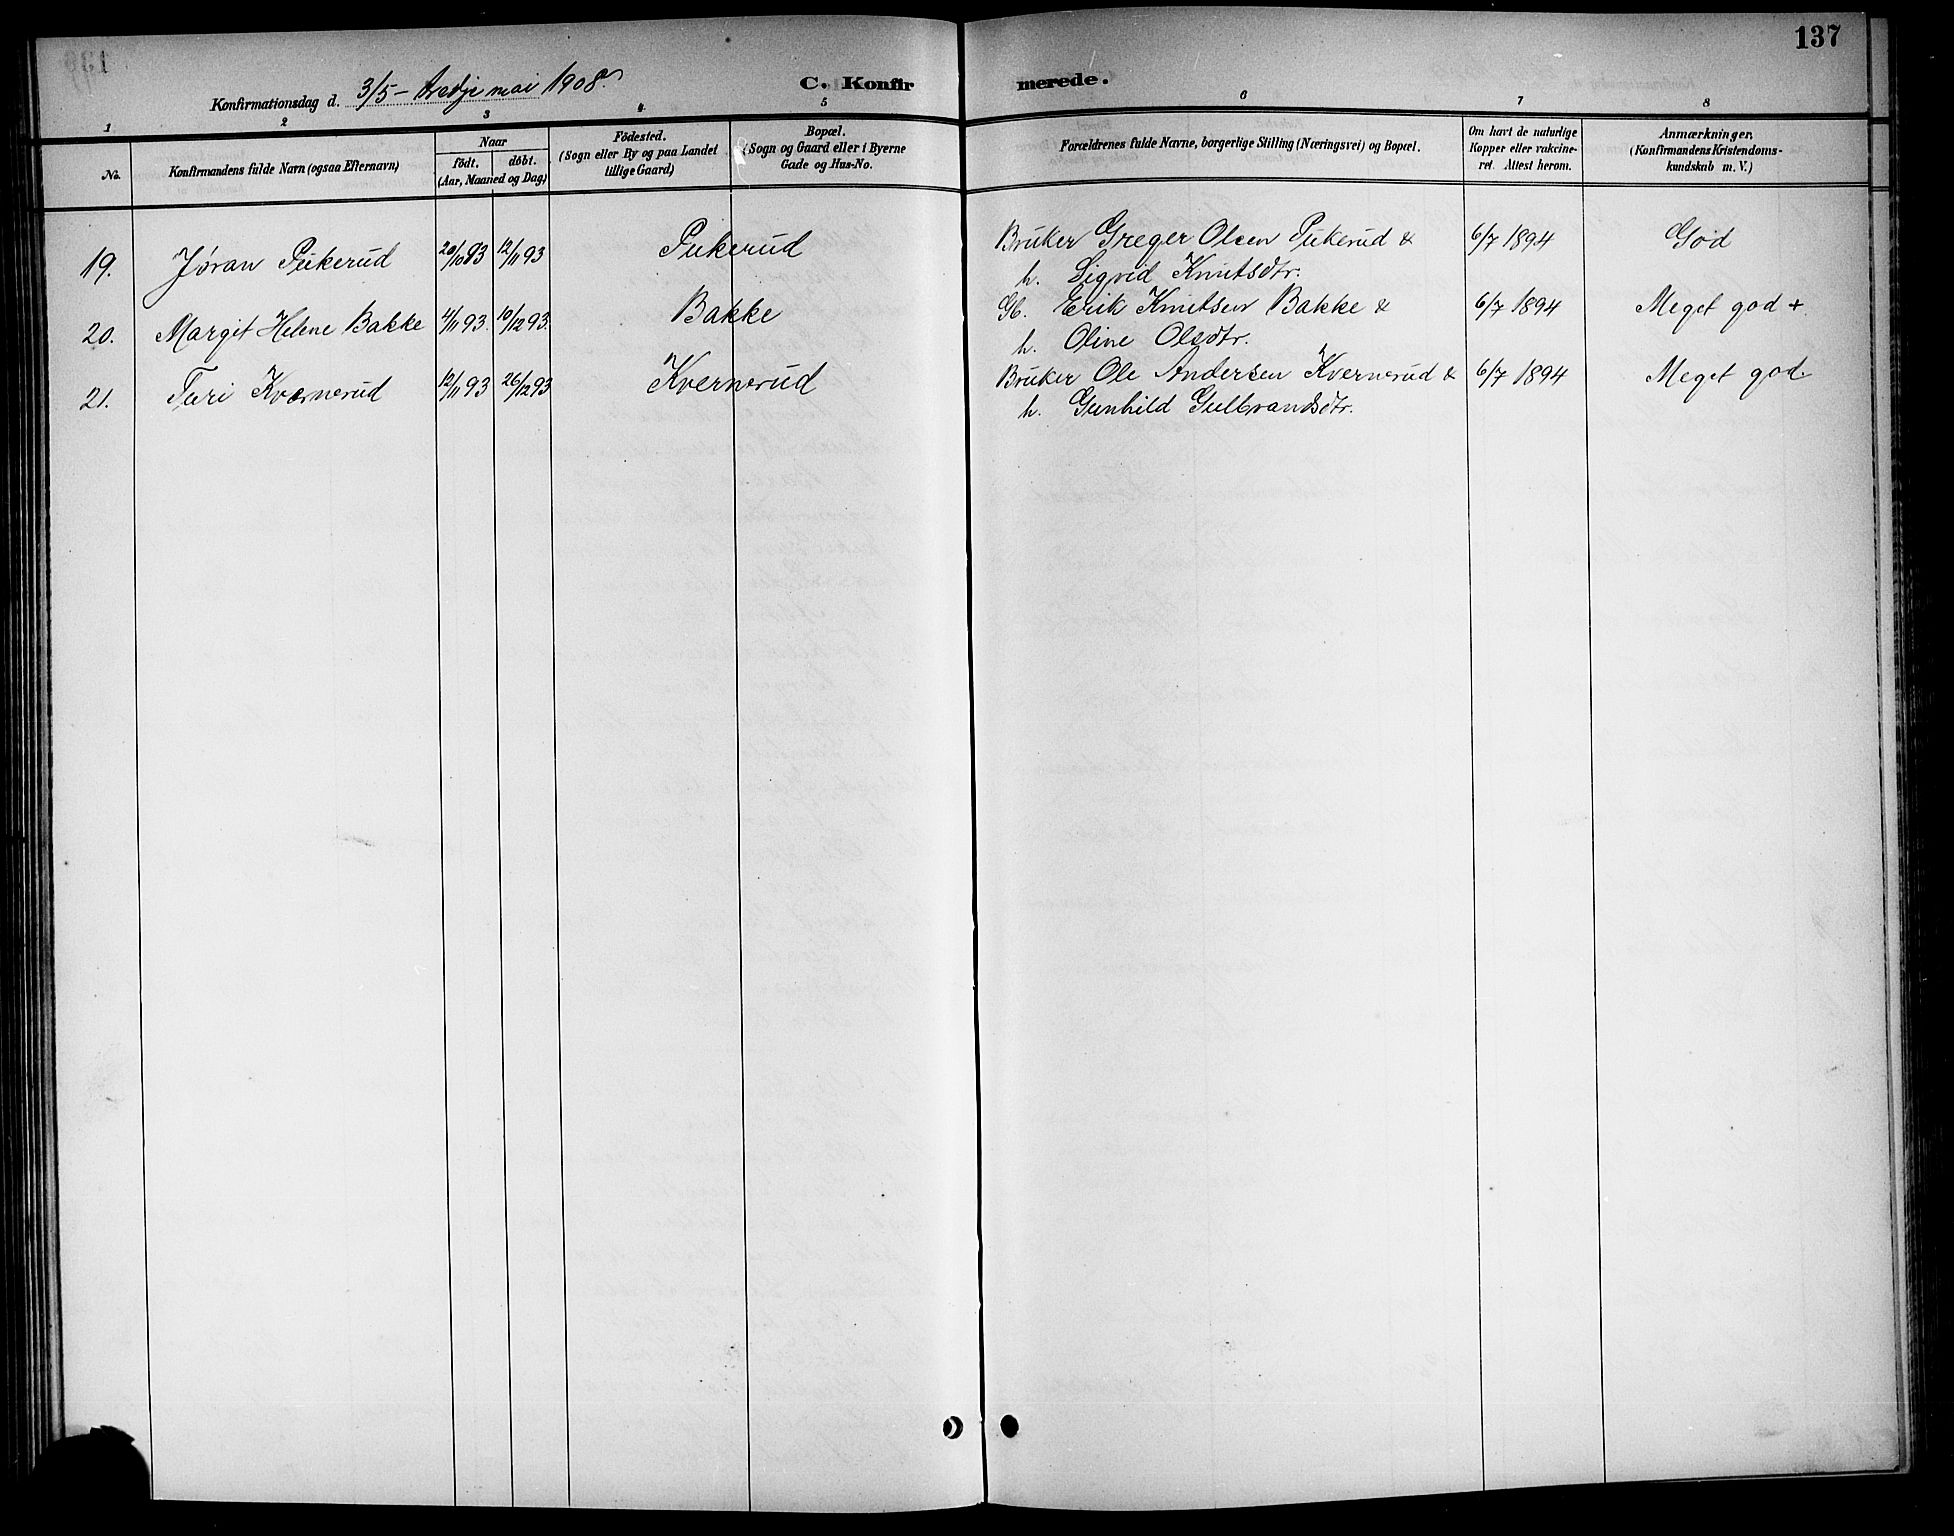 137
Konfirmationsdag d. 3/5 - tredje mai 1908.
C. Konfirmerede.
1 2 3 4 5 6 7 8
No.
Konfirmandens fulde Navn (ogsaa Efternavn)
Naar
født. døbt.
(Aar, Maaned og Dag)
Fødested.
(Sogn eller By og paa Landet
tillige Gaard)
Bopæl.
(Sogn og Gaard eller i Byerne
Gade og Hus-No.
Forældrenes fulde Navne, borgerlige Stilling (Næringsvei) og Bopæl.
Om havt de naturlige
Kopper eller vakcine-
ret. Attest herom.
Anmærkninger.
(Konfirmandens Kristendoms-
kundskab m. V.)
19. Jøran Pukerud 20/10 93 12/11 93 Pukerud Bruker Greger Olsen Pukerud & 6/7 1894 God
h. Sigrid Knutsdtr.
20. Margit Helene Bakke 4/11 93. 10/12 93. Bakke Gb. Erik Knutsen Bakke & 6/7 1894 Meget god +
h. Oline Olsdtr.
21. Turi Kværnerud 12/11 93 26/12 93 Kvernerud Bruker Ole Andersen Kvernerud & 6/7 1894 Meget god
h. Gunhild Gulbrandsdtr.